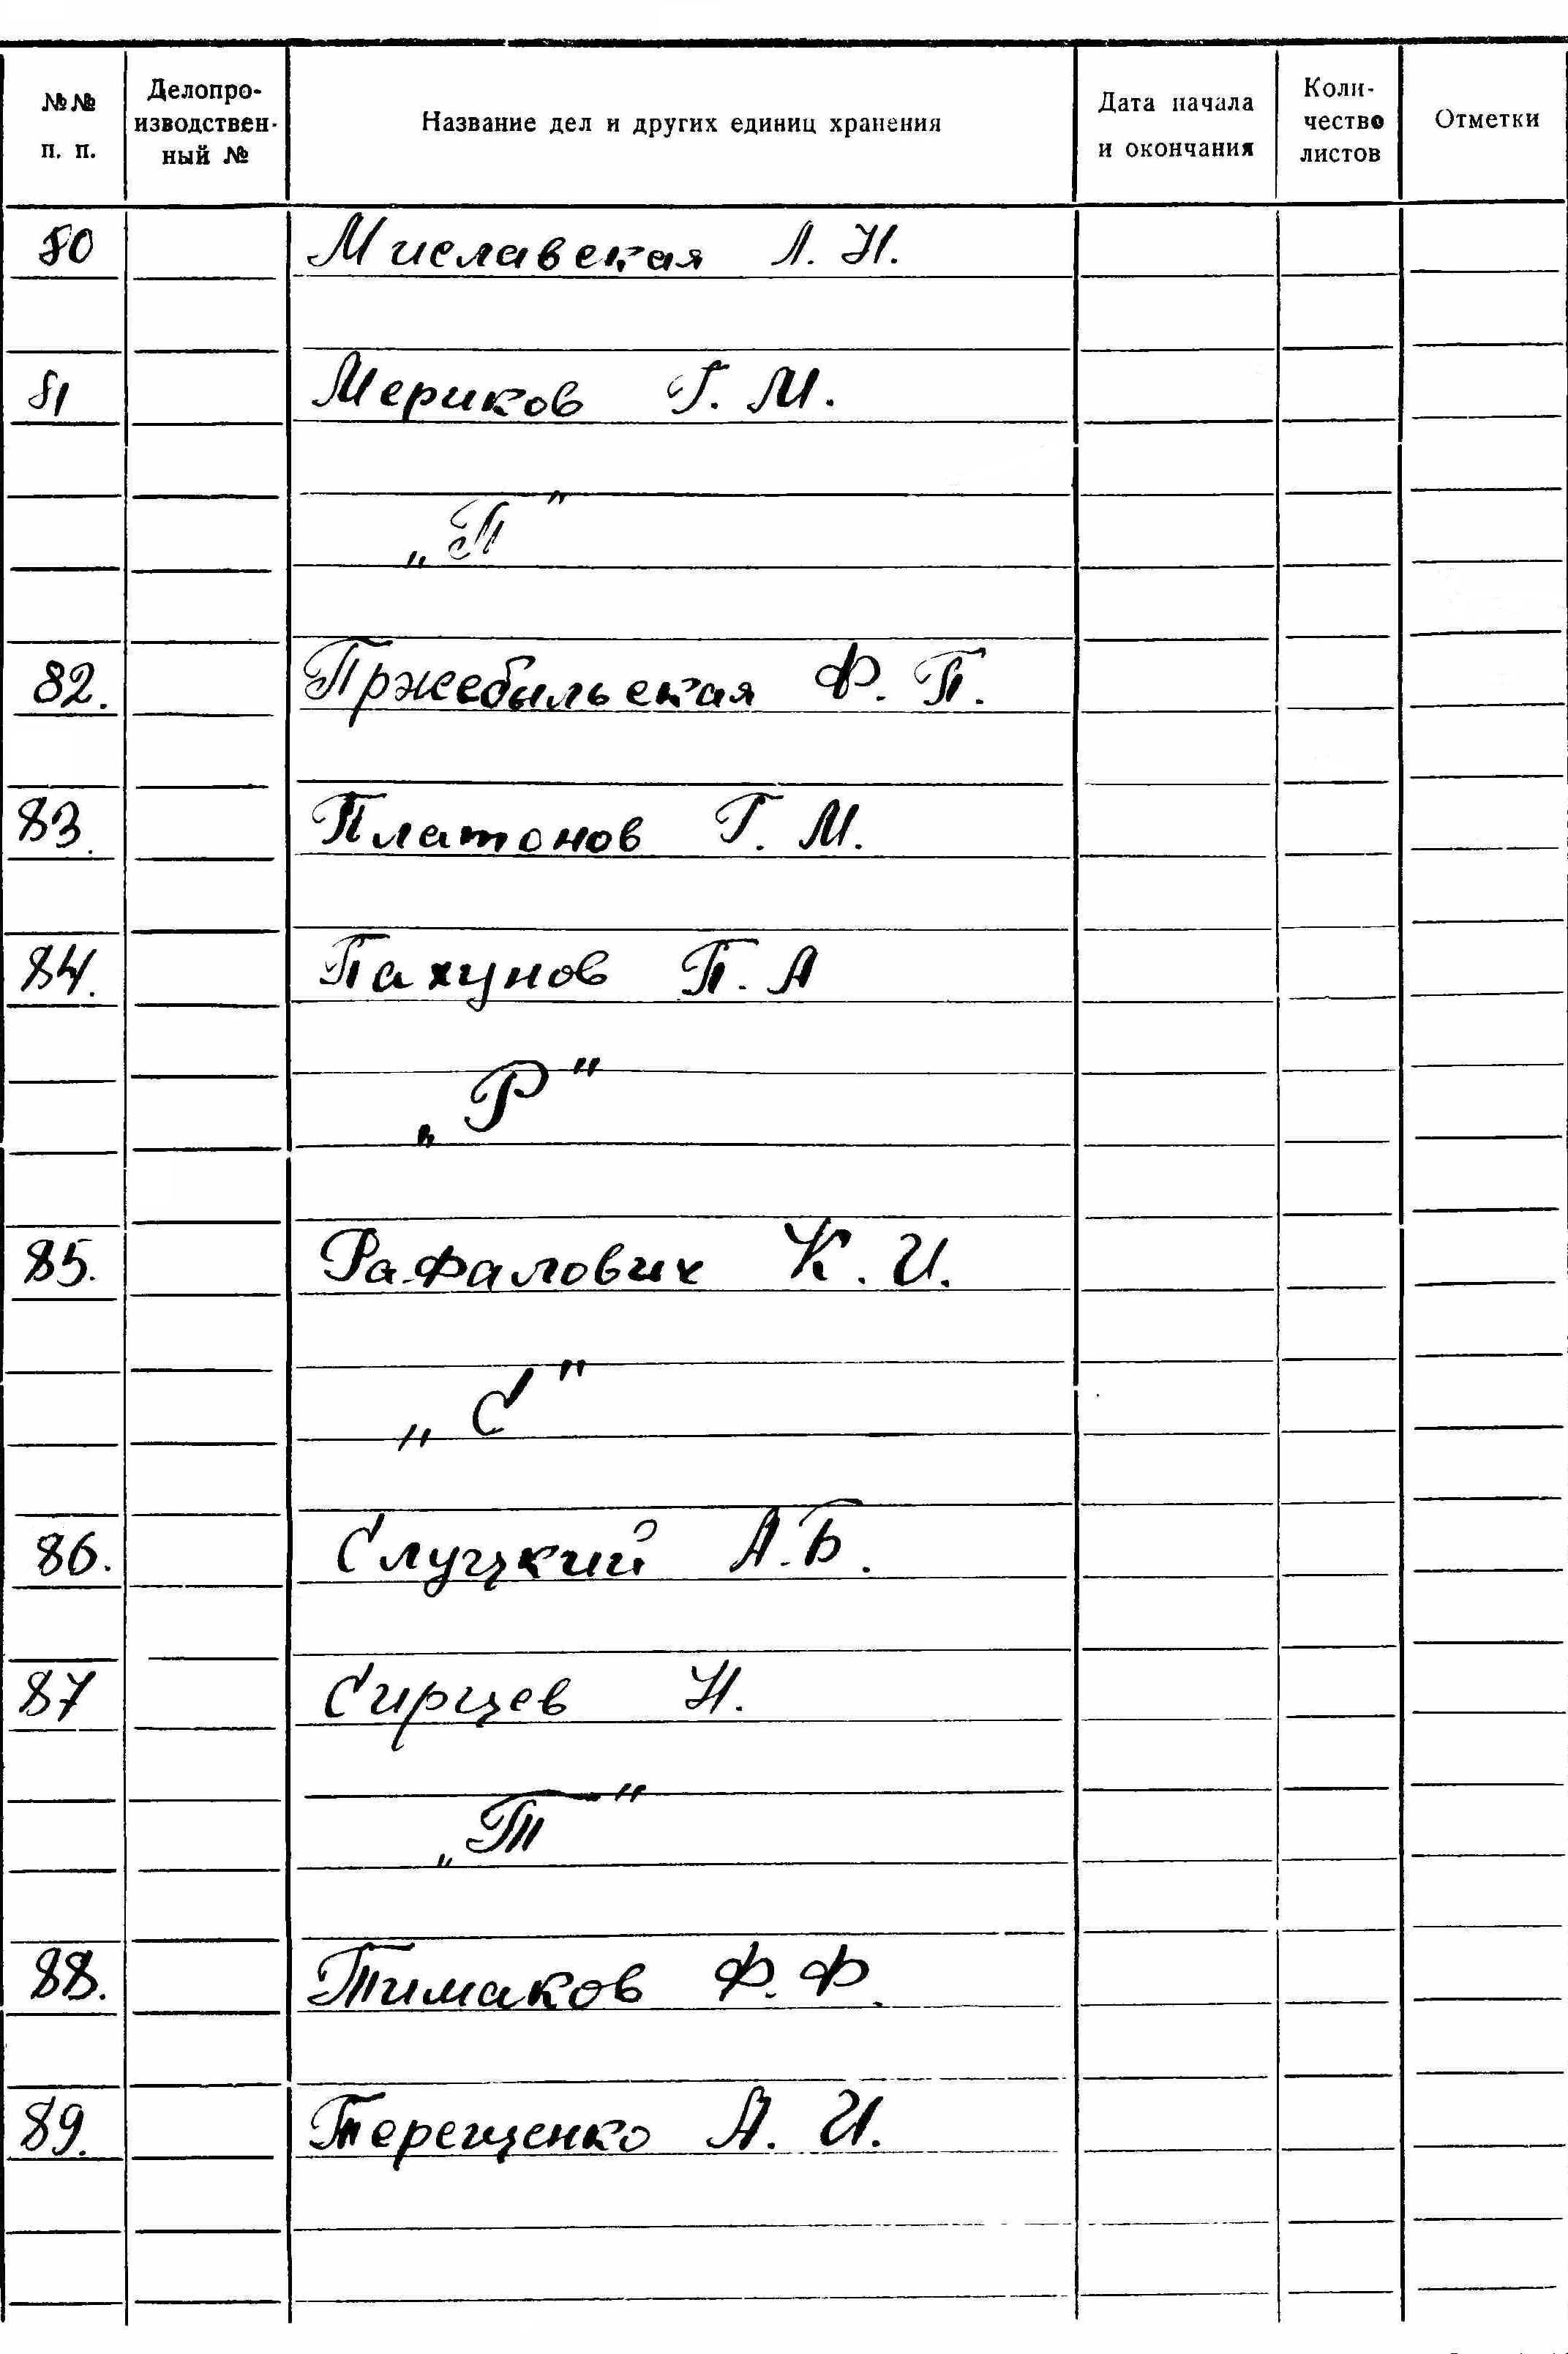 №№ п. п.
Делопро-
изводствен-
ный №
Название дел и других единиц хранения
Дата начала
и окончания
Коли-
чество
листов
Отметки
80 Миславская Л. Н.
81 Мериков Г. М.
„П"
82. Пржебыльская Ф. П.
83. Платонов Г. М.
84. Пахунов П. А
„Р"
85. Рафалович К. И.
„С"
86. Слуцкий А. Б.
87 Сирцев Н.
„Т"
88. Тимаков Ф. Ф.
89. Терещенко А. И.